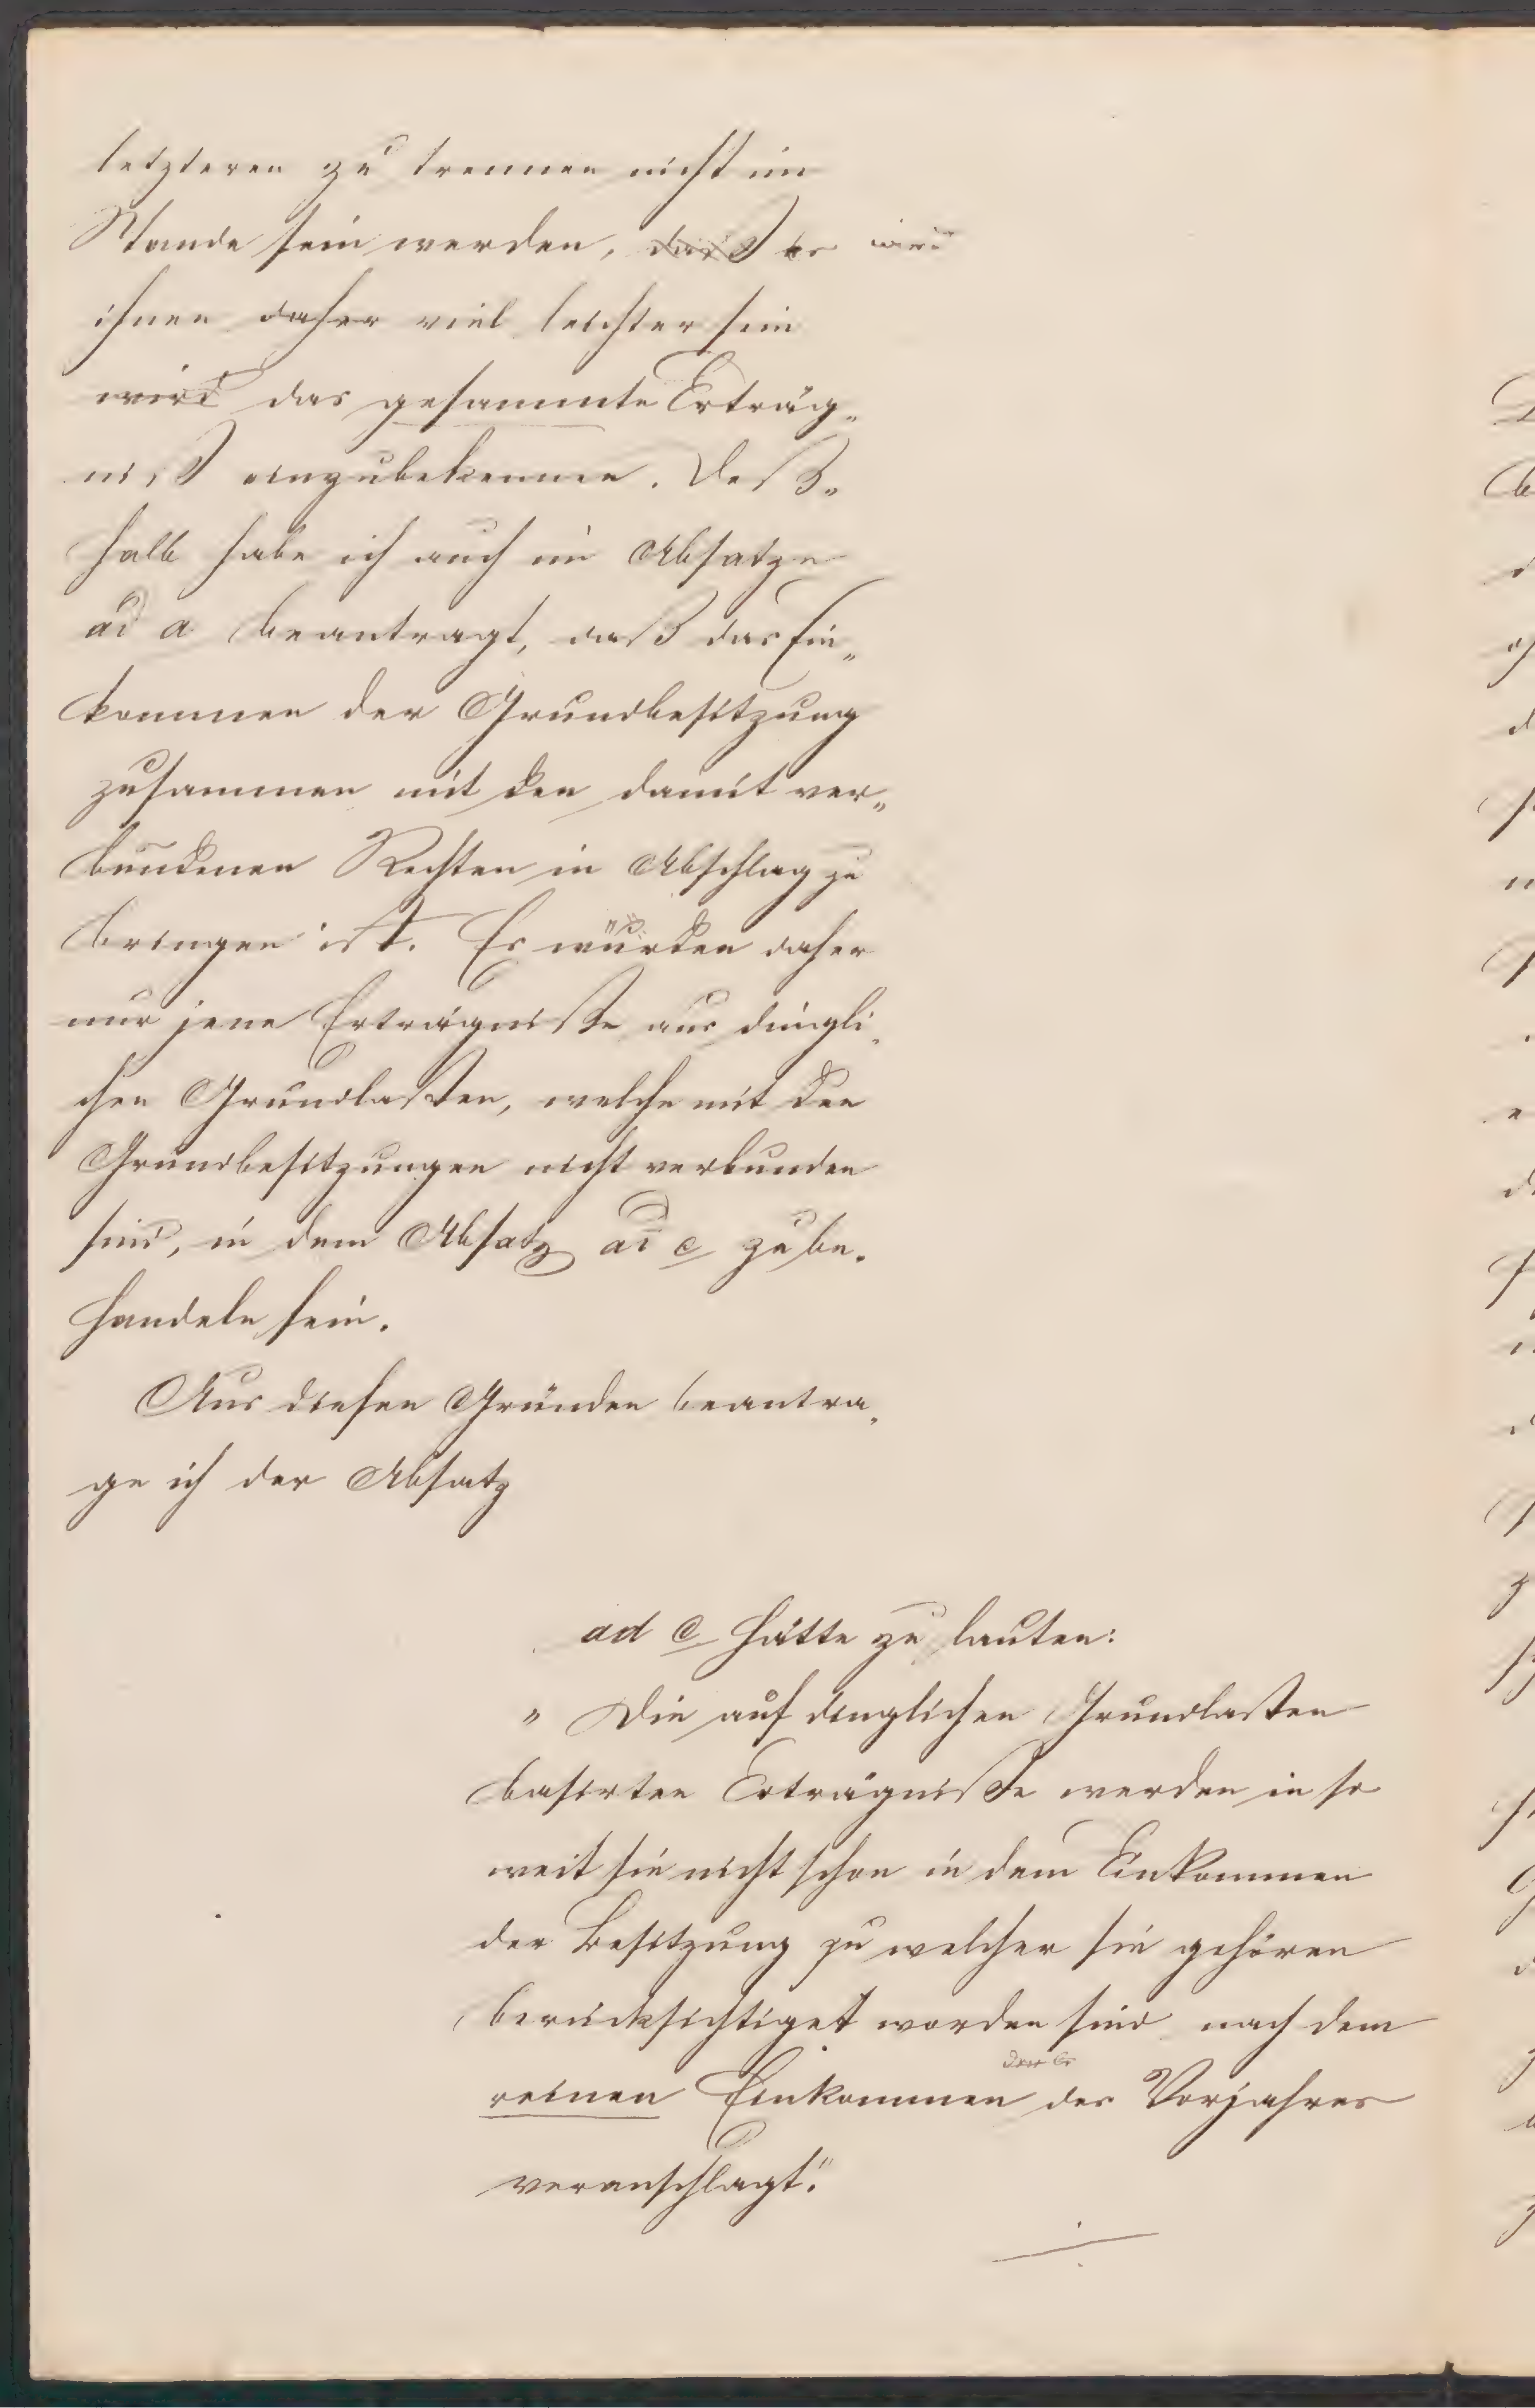 letzteren zu trennen nicht im
Stande sein werden, daß es wird
ihnen daher viel leichter sein
wird das gesammte Erträg-
niß einzubekennen. Deß-
halb habe ich auch im Absatze
ad a beantragt, daß das Ein-
kommen der Grundbesitzung
zusammen mit den damit ver-
bundenen Rechten in Abschlag zu
bringen ist. Es würden daher
nur jene Erträgnisse aus dingli-
chen Grundlasten, welche mit den
Grundbesitzungen nicht verbunden
sind, in dem Absatz ad c zu be-
handeln sein.
Aus diesen Gründen beantra-
ge ich der Absatz
ad c hätte zu lauten:
" Die auf dinglichen Grundlasten
basirten Erträgnisse werden in so
weit sie nicht schon in dem Einkommen
der Besitzung zu welcher sie gehören
berücksichtiget worden sind nach dem
reinen Einkommen des Vorjahres
veranschlagt."